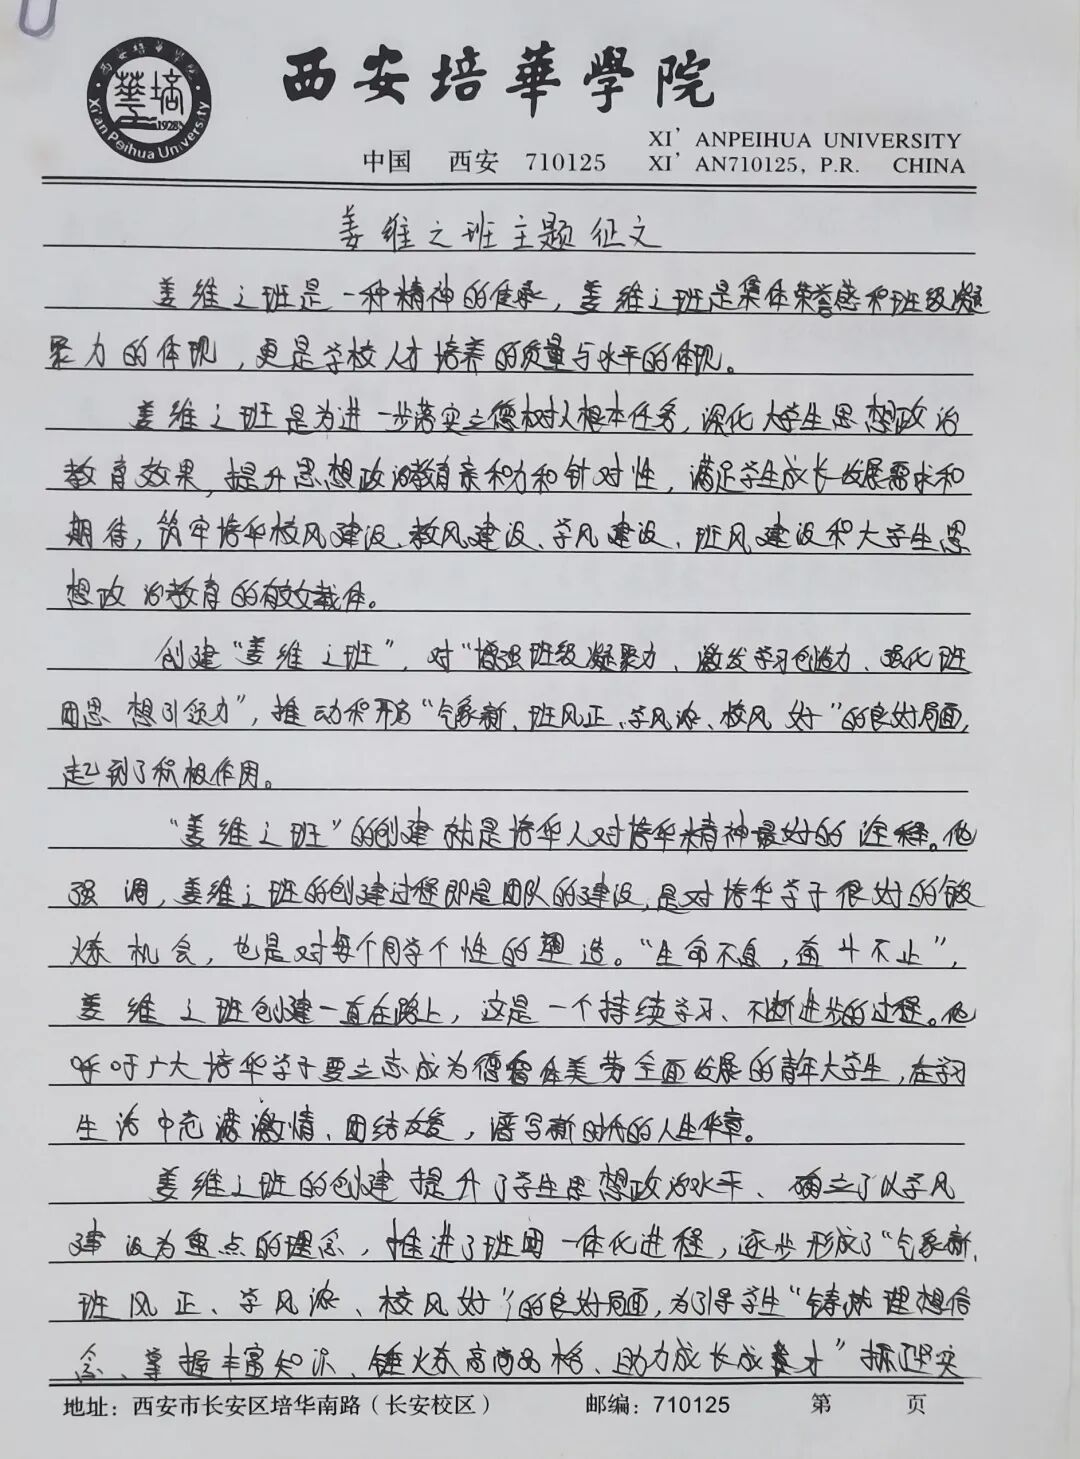 西安培華學院
XI' ANPEIHUA UNIVERSITY
中国 西安 710125 XI' AN710125, P.R. CHINA
西安培华学院
華培
1928
Xi'an Peihua University
姜维之班主题征文
姜维之班是一种精神的传承，姜维之班是集体荣誉感和班级凝
聚力的体现，更是学校人才培养的质量与水平的体现。
姜维之班是为进一步落实立德树人根本任务，深化大学生思想政治
教育效果，提升思想政治教育亲和力和针对性，满足学生成长发展需求和
期待，筑牢培华校风建设、教风建设、学风建设、班风建设和大学生思
想政治教育的有效载体。
创建“姜维之班”，对“增强班级凝聚力、激发学习创造力、强化班
团思想引领力”，推动和形“气象新、班风正、学风浓、校风好”的良好局面，
起到了积极作用。
“姜维之班”的创建就是培华人对培华精神最好的诠释。他
强调，姜维之班的创建过程即是团队的建设，是对培华学子很好的锻
炼机会，也是对每个同学个性的塑造。“生命不息，奋斗不止”，
姜维之班创建一直在路上，这是一个持续学习、不断进步的过程。他
呼吁广大培华学子要立志成为德智体美劳全面发展的青年大学生，在学习
生活中充满激情、团结友爱，谱写新时代的人生华章。
姜维之班的创建提升了学生思想政治水平、确立了以学风
建设为重点的理念，推进了班团一体化进程，逐步形成了“气象新、
班风正、学风浓、校风好”的良好局面，为引导学生“铸就理想信
念、掌握丰富知识、锤炼高尚品格、助力成长成才”打下坚实
地址：西安市长安区培华南路（长安校区） 邮编：710125 第 页